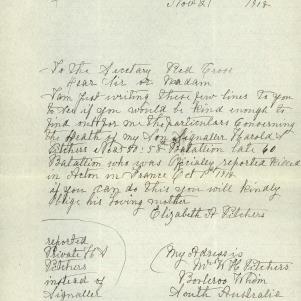 Nov 21 1918
To the Secretary Red Cross
Dear Sir or Madam
I am Just writing these few lines to you
to see if you would be kind enough to
find out for me the particulars Concerning
the death of my Son Signaller Harold S
Pitchers 58th Battalion late 60
Battallion who was Officially reported Killed
in Action in France Oct 1st 1918
if you can do this you will kindly
oblige his loving mother
Elizabeth A Pitchers
reported
Private H S
Pitchers
instead of
Signaller
My Adress is
Mrs W H Pitchers
Booleroo Whim
South Australia